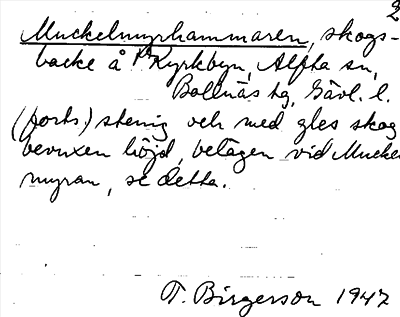 2
Muckelmyrhammaren, skogs-
backe å Kyrkbyn, Alfta sn,
Bollnäs tg, Gävl. l.
(forts.) stenig och med gles skog
bevuxen höjd, belägen vid Muckel
myran, se detta.
T. Birgerson 1947